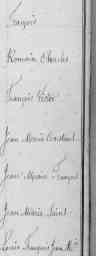 François
Romain Charles
François Victor
Jean Marie Constant
Jean Marie François
Jean Marie
Louis François Jean Mie